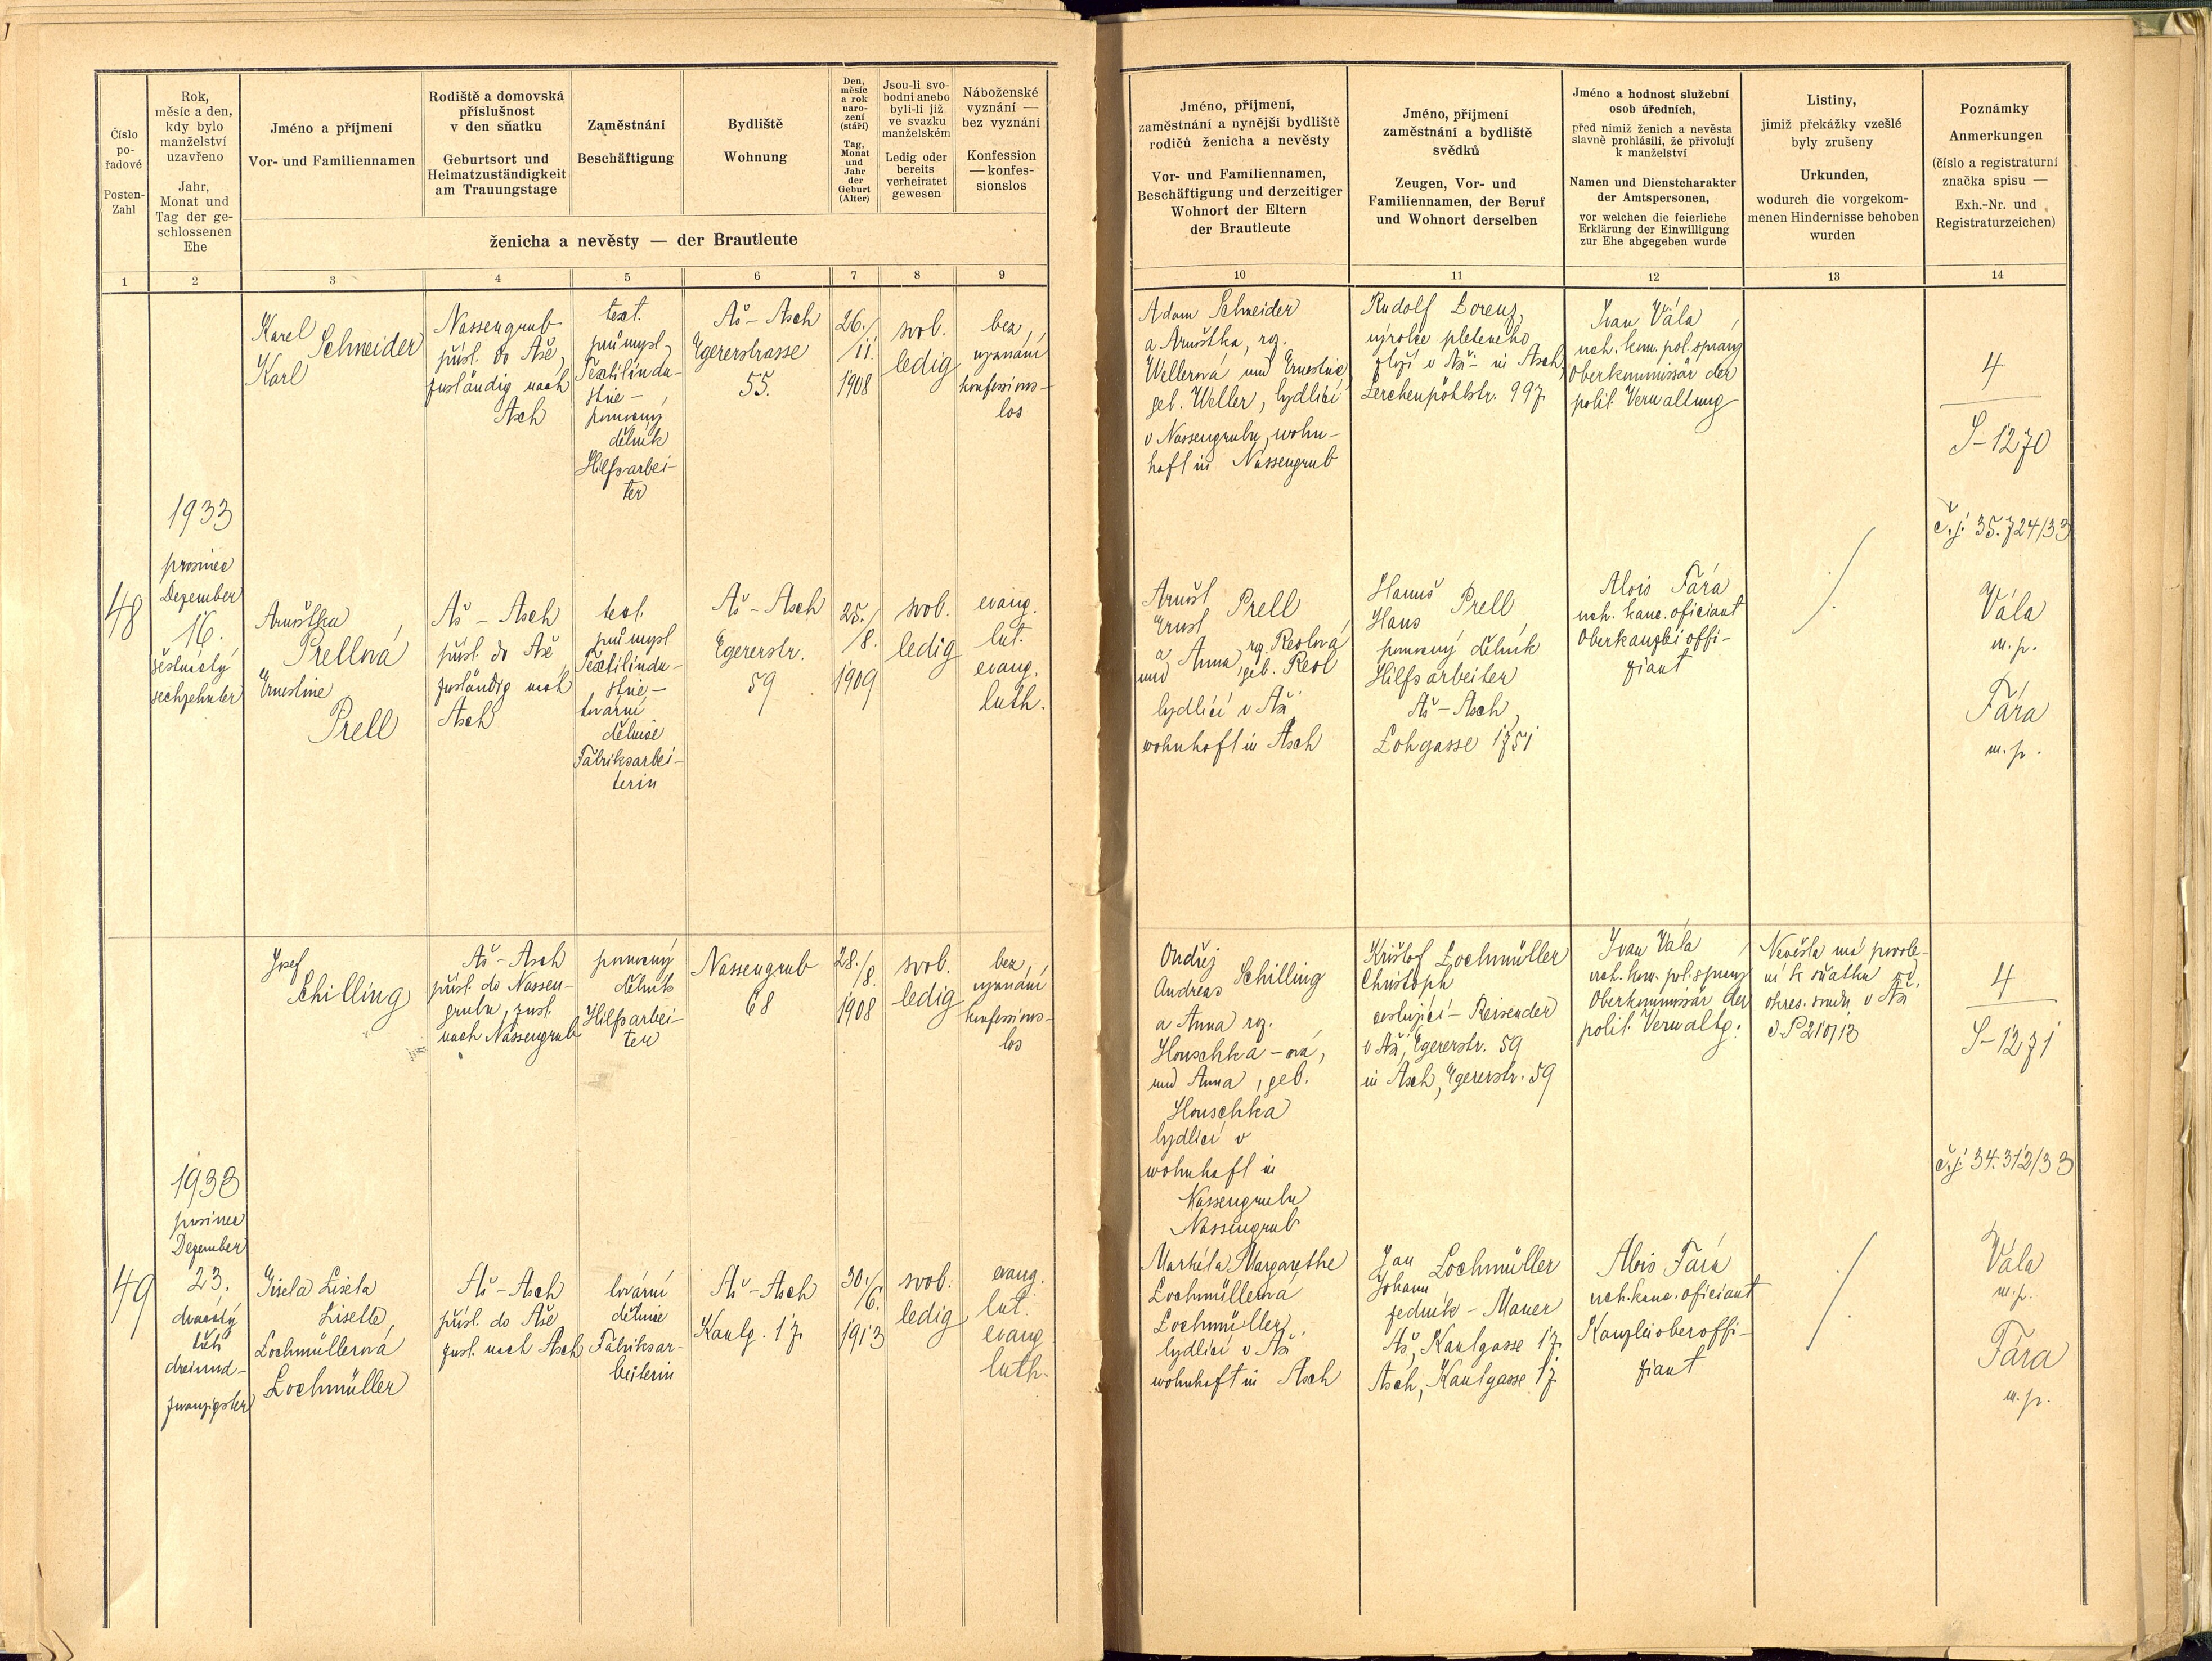 Číslo
po-
řadové
Posten-
Zahl
Rok,
měsíc a den,
kdy bylo
manželství
uzavřeno
Jahr,
Monat und
Tag der ge-
schlossenen
Ehe
Jméno a příjmení
Vor- und Familiennamen
Rodiště a domovská
příslušnost
v den sňatku
Geburtsort und
Heimatzuständigkeit
am Trauungstage
Zaměstnání
Beschäftigung
Bydliště
Wohnung
Den,
měsíc
a rok
naro-
zení
(stáří)
Tag,
Monat
und
Jahr
der
Geburt
(Alter)
Jsou-li svo-
bodni anebo
byli-li již
ve svazku
manželském
Ledig oder
bereits
verheiratet
gewesen
Náboženské
vyznání —
bez vyznání
Konfession
— konfes-
sionslos
ženicha a nevěsty — der Brautleute
1 2 3 4 5 6 7 8 9
Jméno, příjmení,
zaměstnání a nynější bydliště
rodičů ženicha a nevěsty
Vor- und Familiennamen,
Beschäftigung und derzeitiger
Wohnort der Eltern
der Brautleute
Jméno, příjmení
zaměstnání a bydliště
svědků
Zeugen, Vor- und
Familiennamen, der Beruf
und Wohnort derselben
Jméno a hodnost služební
osob úředních,
před nimiž ženich a nevěsta
slavně prohlásili, že přivolují
k manželství
Namen und Dienstcharakter
der Amtspersonen,
vor welchen die feierliche
Erklärung der Einwilligung
zur Ehe abgegeben wurde
Listiny,
jimiž překážky vzešlé
byly zrušeny
Urkunden,
wodurch die vorgekom-
menen Hindernisse behoben
wurden
Poznámky
Anmerkungen
(číslo a registraturní
značka spisu —
Exh.-Nr. und
Registraturzeichen)
10 11 12 13 14
48
1933
prosinec
Dezember
16.
šestnáctý
sechzehnter
Karel
Schneider
Karl
Nassengrub
přísl. do Aše,
zuständig nach
Asch
text.
průmysl,
Textilindu-
strie-
pomocný
dělník
Hilfsarbei-
ter
Aš - Asch
Egererstrasse
55.
26./
11.
1908
svob.
ledig
bez
vyznání
konfessions-
los
Adam Schneider
a Arnoštka, roz.
Wellerová und Ernestine
geb. Weller, bydlící
v Nassengrubu, wohn-
haft in Nassengrub
Rudolf Lorenz,
výrobce pleteného
zboží v Aši - in Asch,
Lerchenpöhlstr. 997
Ivan Vála,
vrch. kom. pol. správy
Oberkommissär der
polit. Verwaltung
4
S-1270
č.j. 35.724/33
Arnoštka
Prellová,
Ernestine
Prell
Aš - Asch
přísl. do Aše
zuständig nach
Asch
text.
průmysl
Textilindu-
strie-
tovární
dělnice
Fabriksarbei-
terin
Aš - Asch
Egererstr.
59
25./
8.
1909
svob.
ledig
evang.
lut.
evang.
luth.
Arnošt
Prell
Ernst
a
und Anna, roz. Reslová
geb. Resl
bydlící v Aši
wohnhaft in Asch
Hanuš
Prell,
Hans
pomocný dělník
Hilfsarbeiter
Aš - Asch,
Lohgasse 1751
Alois Fára
vrch. kanc. oficiant
Oberkanzleioffi-
ziant
Vála
m. p.
Fára
m. p.
49
1933
prosinec
Dezember
23.
dvacátý
třetí
dreiund-
zwanzigster
Josef
Schilling
Aš - Asch
přísl. do Nassen-
grubu, zust.
nach Nassengrub
pomocný
dělník
Hilfsarbei-
ter
Nassengrub
68
28./
8.
1908
svob.
ledig
bez
vyznání
konfessions-
los
Ondřej
Schilling
Andreas
a Anna roz.
Houschka - ová,
und Anna, geb.
Houschka
bydlící v
wohnhaft in
Nassengrubu
Nassengrub
Krištof Lochmüller
Christoph
cestující - Reisender
v Aši, Egererstr. 59
in Asch, Egererstr. 59
Ivan Vála,
vrch. kom. pol. správy
Oberkommissär der
polit. Verwaltg.
Nevěsta má povole-
ní k sňatku od
okres. soudu v Aši
4
S-1271
č.j. 34.312/33
Gisela Lisela
Lisette,
Lochmüllerová
Lochmüller
Aš - Asch
přísl. do Aše
zust. nach Asch
tovární
dělnice
Fabriksar-
beiterin
Aš - Asch
Kaulg. 17
30./
6.
1913
svob.
ledig
evang.
lut.
evang.
luth.
Markéta, Margarethe
Lochmüllerová
Lochmüller,
bydlící v Aši
wohnhaft in Asch
Jan
Lochmüller
Johann
zedník - Maurer
Aš, Kaulgasse 17
Asch, Kaulgasse 17
Alois Fára
vrch. kanc. oficiant
Kanzleioberoffi-
ziant
Vála
m. p.
Fára
m. p.